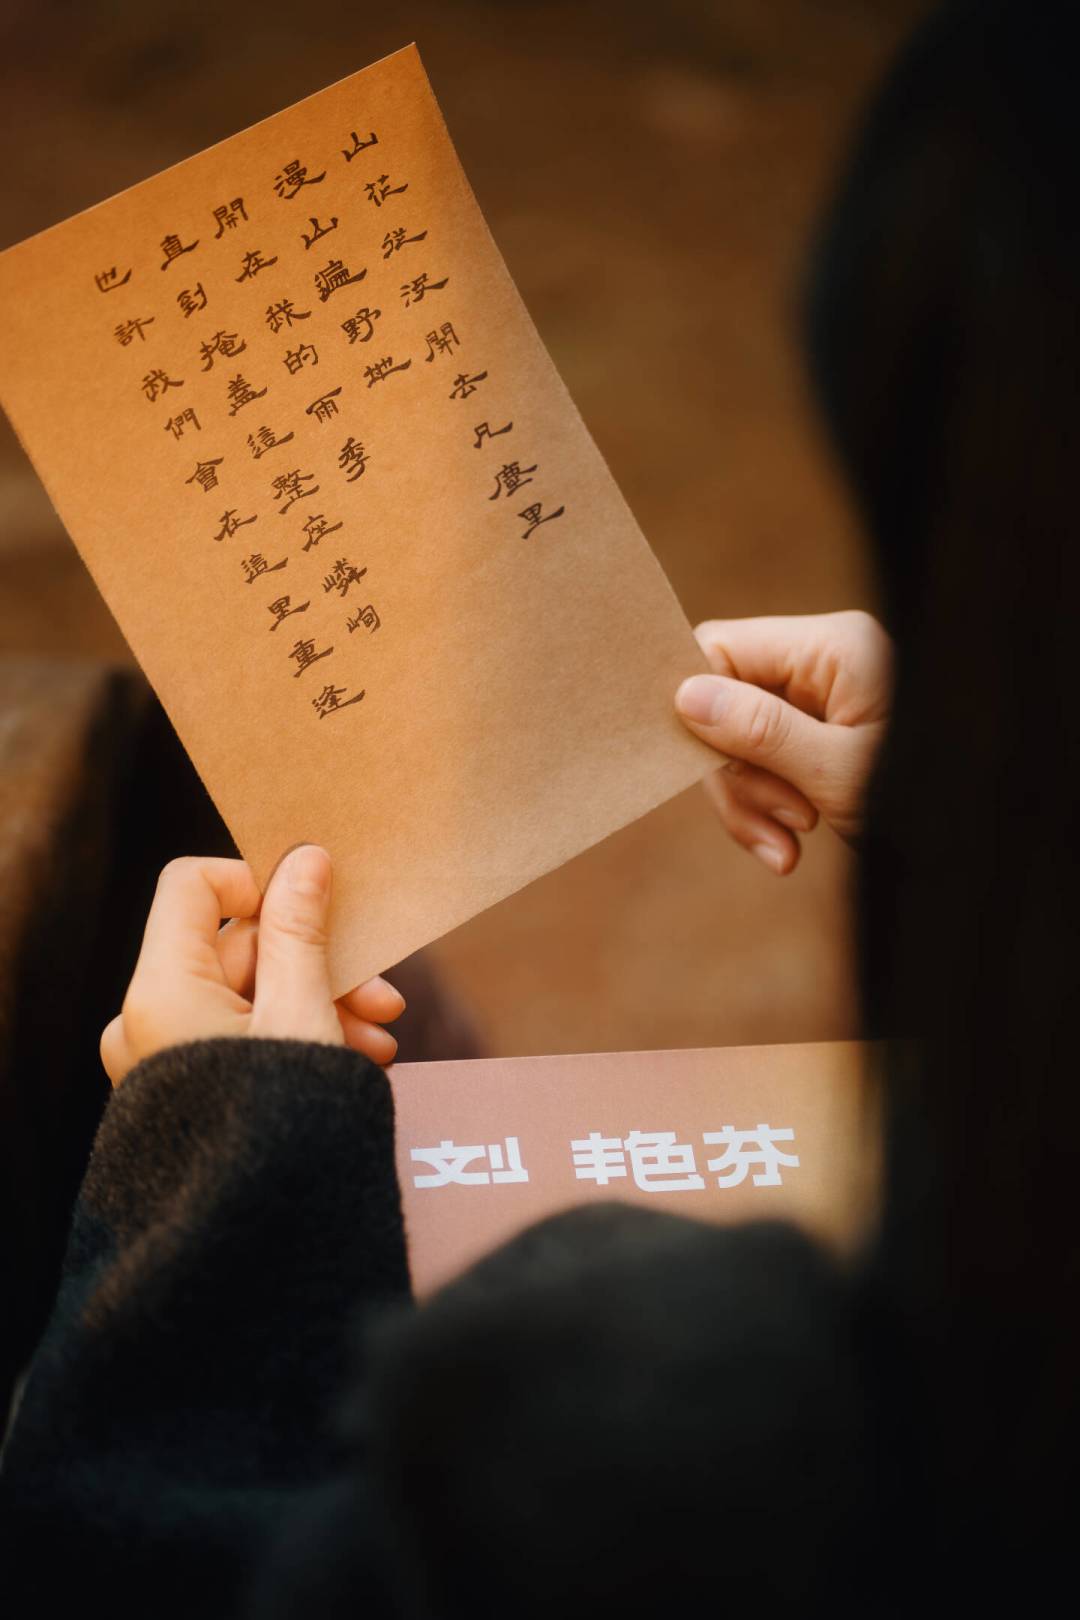 山花從沒開去凡塵里
漫山遍野地
開在我的雨季
直到掩蓋這整座嶙峋
也許我們會在這里重逢
刘 艳芬